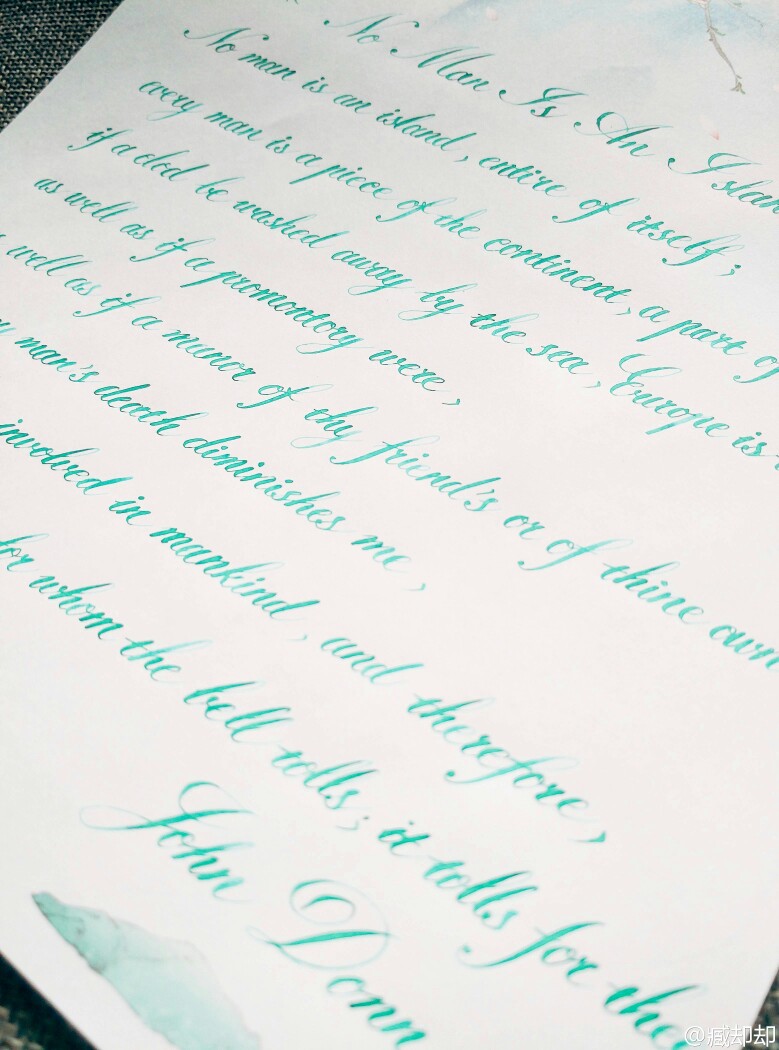 No Man Is An Islan
No man is an island, entire of itself;
every man is a piece of the continent, a part of
if a clod be washed away by the sea, Europe is
as well as if a promontory were,
well as if a manor of thy friend's or of thine own
y man's death diminishes me,
involved in mankind, and therefore,
for whom the bell tolls; it tolls for thee
John Donn
@臧却却